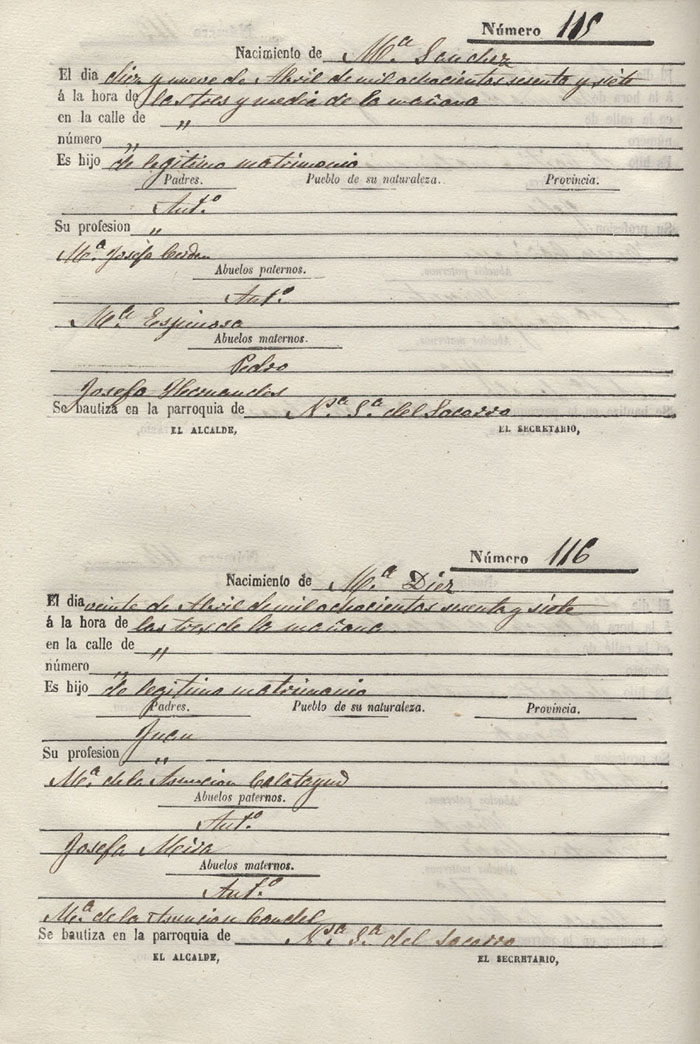 Número 115
Nacimiento de Mª Sanchez
El dia diez y nueve de Abril de mil ochocientos sesenta y siete
á la hora de las tres y media de la mañana
en la calle de "
número "
Es hijo de legitimo matrimonio
Padres. Pueblo de su naturaleza. Provincia.
Antº
Su profesion "
Mª Josefa Cerdan
Abuelos paternos.
Antº
Mª Espinosa
Abuelos maternos.
Pedro
Josefa Hernandes
Se bautiza en la parroquia de Nª Sª del Socorro
EL ALCALDE, EL SECRETARIO,
Número 116
Nacimiento de Mª Diez
El dia veinte de Abril de mil ochocientos sesenta y siete
á la hora de las tres de la mañana
en la calle de "
número "
Es hijo de legitimo matrimonio
Padres. Pueblo de su naturaleza. Provincia.
Juan
Su profesion "
Mª de la Asuncion Calatayud
Abuelos paternos.
Antº
Josefa Mira
Abuelos maternos.
Antº
Mª de la Asuncion Candel
Se bautiza en la parroquia de Nª Sª del Socorro
EL ALCALDE, EL SECRETARIO,